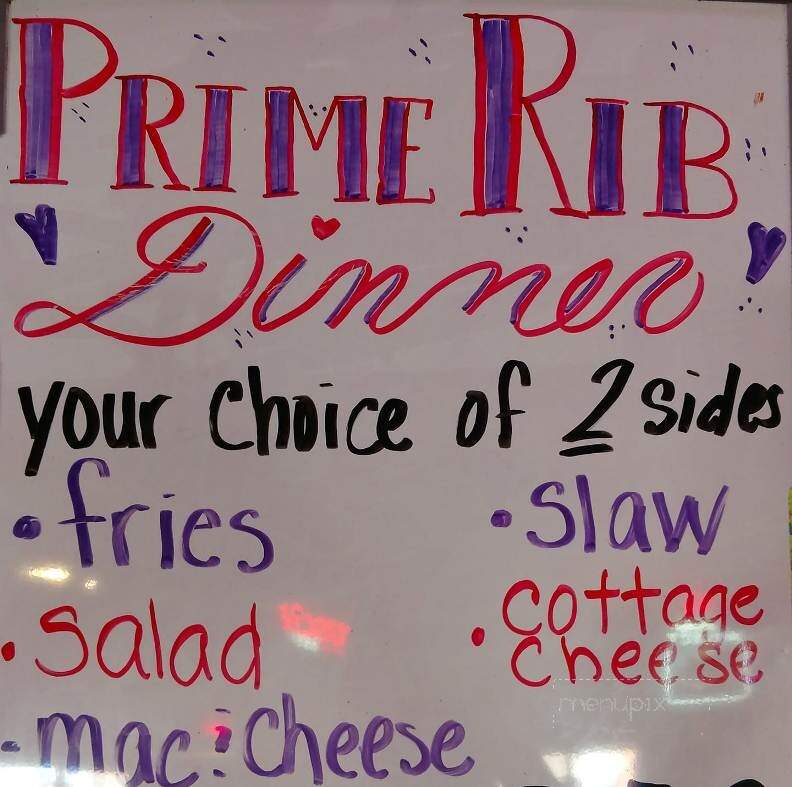 PRIME RIB
Dinner
your choice of 2 sides
• fries
• slaw
• salad
• cottage cheese
• mac : cheese
menupix